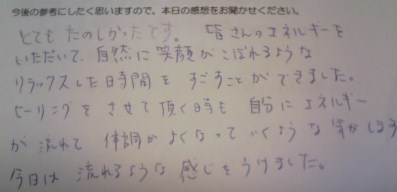 今後の参考にしたく思いますので、本日の感想をお聞かせください。
とても たのしかったです。 皆さんのエネルギーを
いただいて、自然に笑顔がこぼれるような
リラックスした時間を すごすことができました。
ヒーリングを させて頂く時も 自分に エネルギー
が 流れて 体調が よくなって いくような 気がしま
今日は 流れるような 感じを うけました。